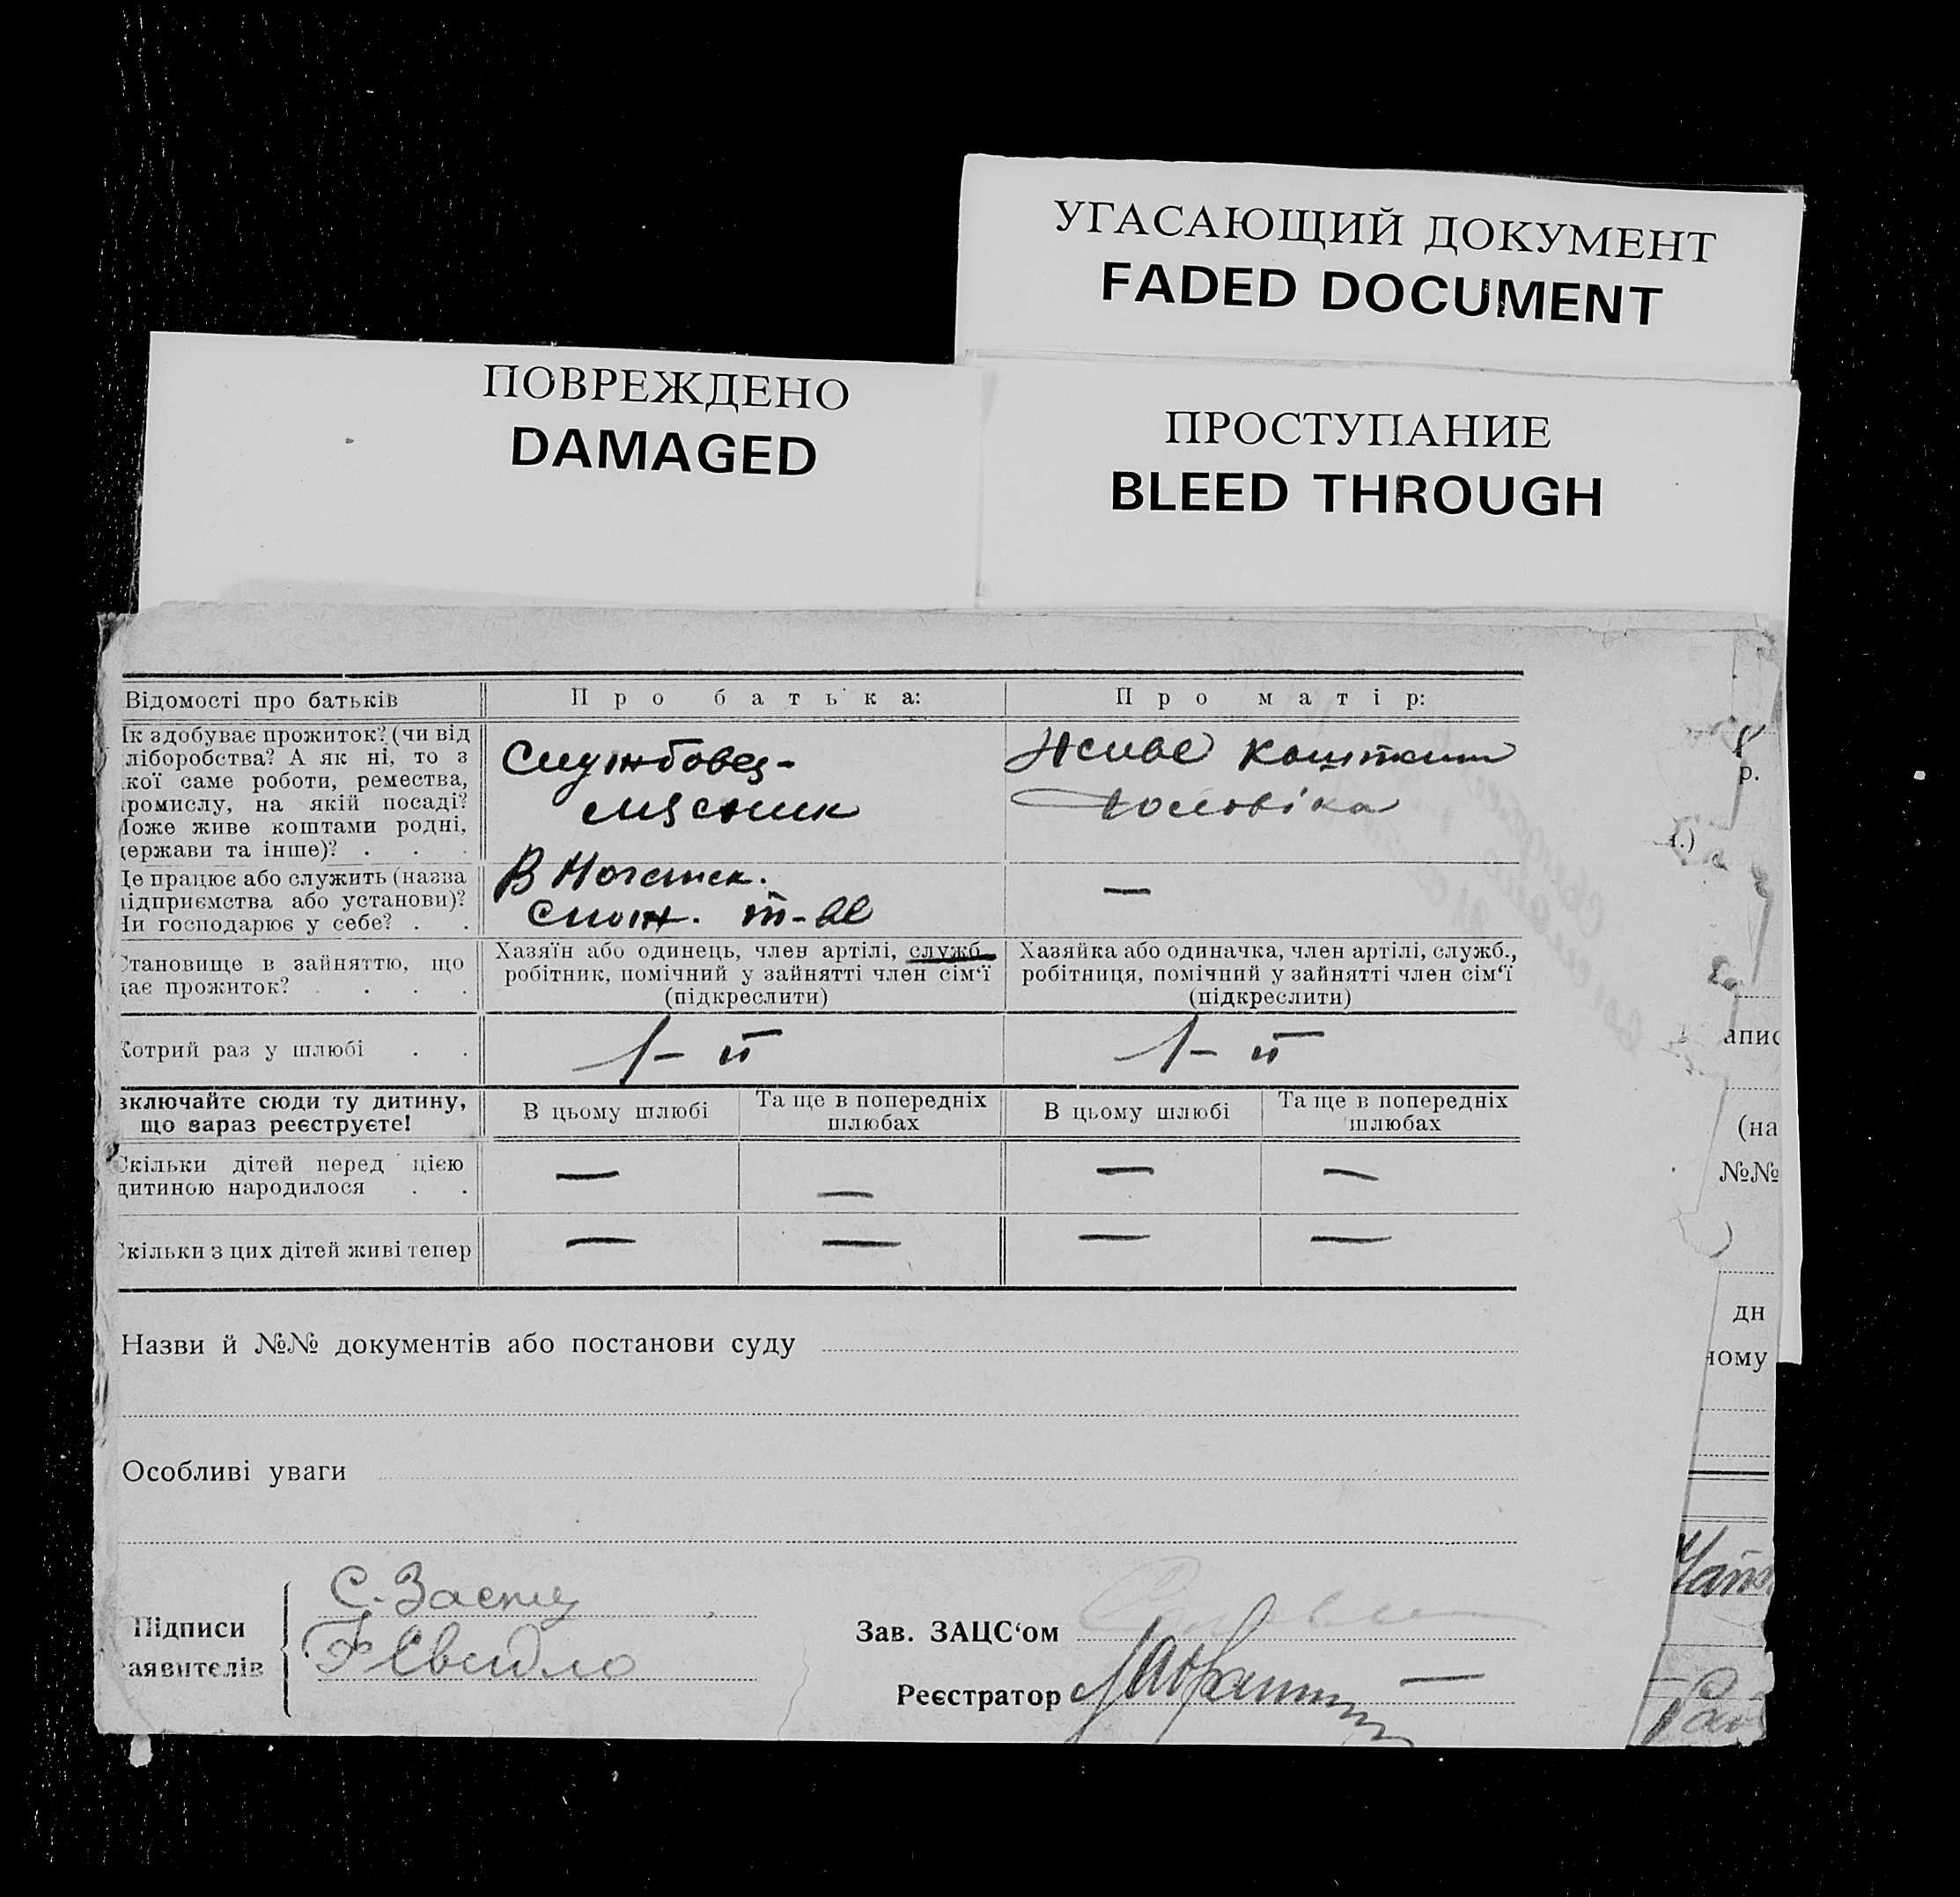 УГАСАЮЩИЙ ДОКУМЕНТ
FADED DOCUMENT
ПОВРЕЖДЕНО
DAMAGED
ПРОСТУПАНИЕ
BLEED THROUGH
Відомості про батьків
Про батька:
Про матір:
Як здобуває прожиток? (чи від
ліборобства? А як ні, то з
кої саме роботи, ремества,
ромислу, на якій посаді?
Може живе коштами родні,
держави та інше)? . . .
Службовец-
мясник
Живе коштами
чоловіка
Де працює або служить (назва
ідприємства або установи)?
Чи господарює у себе? . .
В
спож. т-ве
—
Становище в зайняттю, що
дає прожиток? . . . .
Хазяїн або одинець, член артілі, служб.
робітник, помічний у зайнятті член сім'ї
(підкреслити)
Хазяйка або одиначка, член артілі, служб.,
робітниця, помічний у зайнятті член сім'ї
(підкреслити)
Котрий раз у шлюбі . .
1-й
1-й
включайте сюди ту дитину,
що зараз реєструєте!
В цьому шлюбі
Та ще в попередніх
шлюбах
В цьому шлюбі
Та ще в попередніх
шлюбах
Скільки дітей перед цією
дитиною народилося . .
— — — —
Скільки з цих дітей живі тепер
— — — —
Назви й №№ документів або постанови суду
Особливі уваги
Підписи
аявителів
С.
Зав. ЗАЦС'ом
Реєстратор
р.
апис
(на
№№
дн
ному